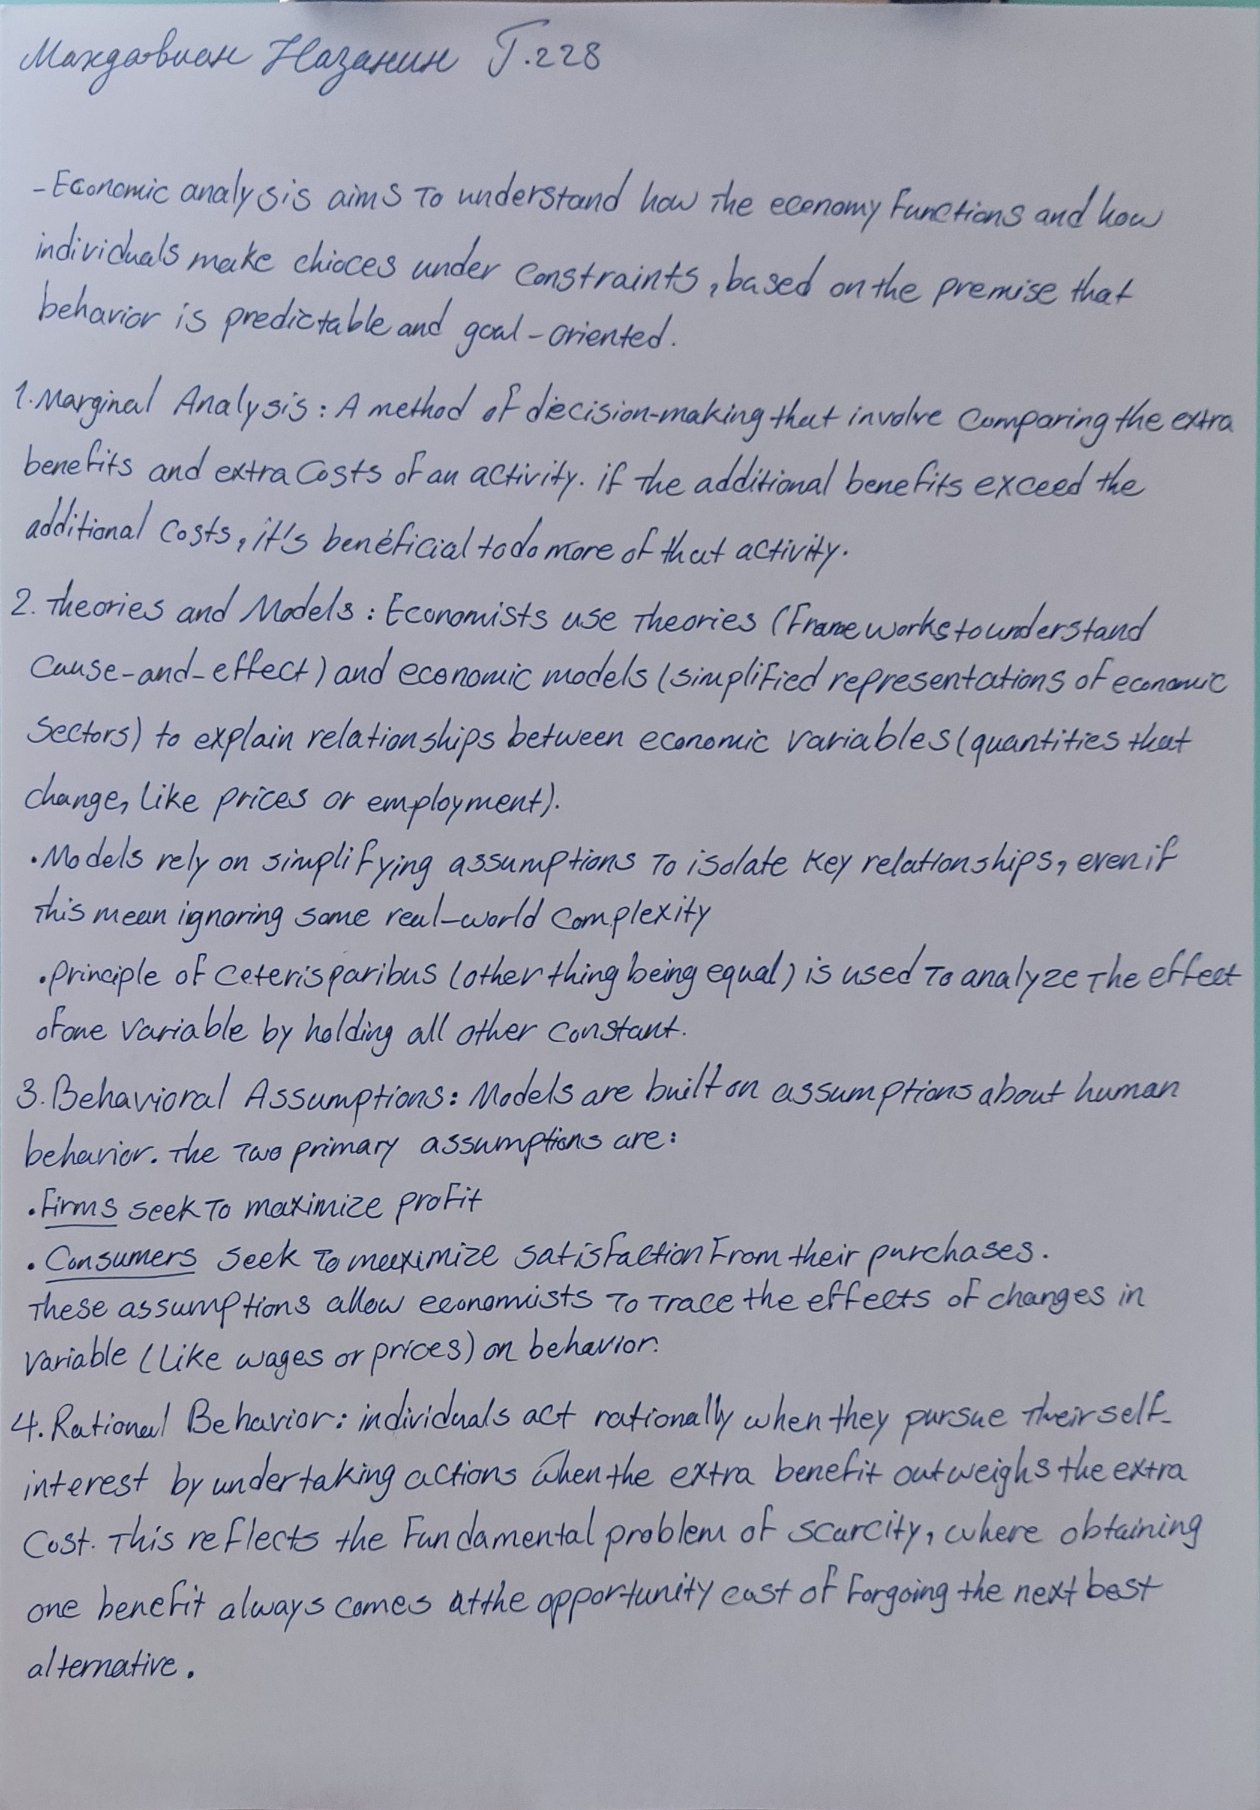 Махдавиан Назанин Г.228
- Economic analysis aims To understand how The economy functions and how
individuals make chioces under constraints, based on the premise that
behavior is predictable and goal-oriented.
1. Marginal Analysis: A method of decision-making that involve comparing the extra
benefits and extra costs of an activity. if the additional benefits exceed the
additional costs, it's beneficial to do more of that activity.
2. Theories and Models: Economists use Theories (Frame works to understand
cause-and-effect) and economic models (simplified representations of economic
sectors) to explain relationships between economic variables (quantities that
change, like prices or employment).
• Models rely on simplifying assumptions To isolate key relationships, even if
This mean ignoring some real-world complexity
• Principle of ceteris paribus (other thing being equal) is used To analyze The effect
of one variable by holding all other constant.
3. Behavioral Assumptions: Models are built on assumptions about human
behavior. The Two primary assumptions are:
• Firms seek To maximize profit
• Consumers seek To maximize satisfaction From their purchases.
These assumptions allow economists To Trace the effects of changes in
variable (Like wages or prices) on behavior.
4. Rational Behavior: individuals act rationally when they pursue Their self-
interest by undertaking actions when the extra benefit outweighs the extra
cost. This reflects the Fundamental problem of scarcity, where obtaining
one benefit always comes at the opportunity cost of Forgoing the next best
alternative.